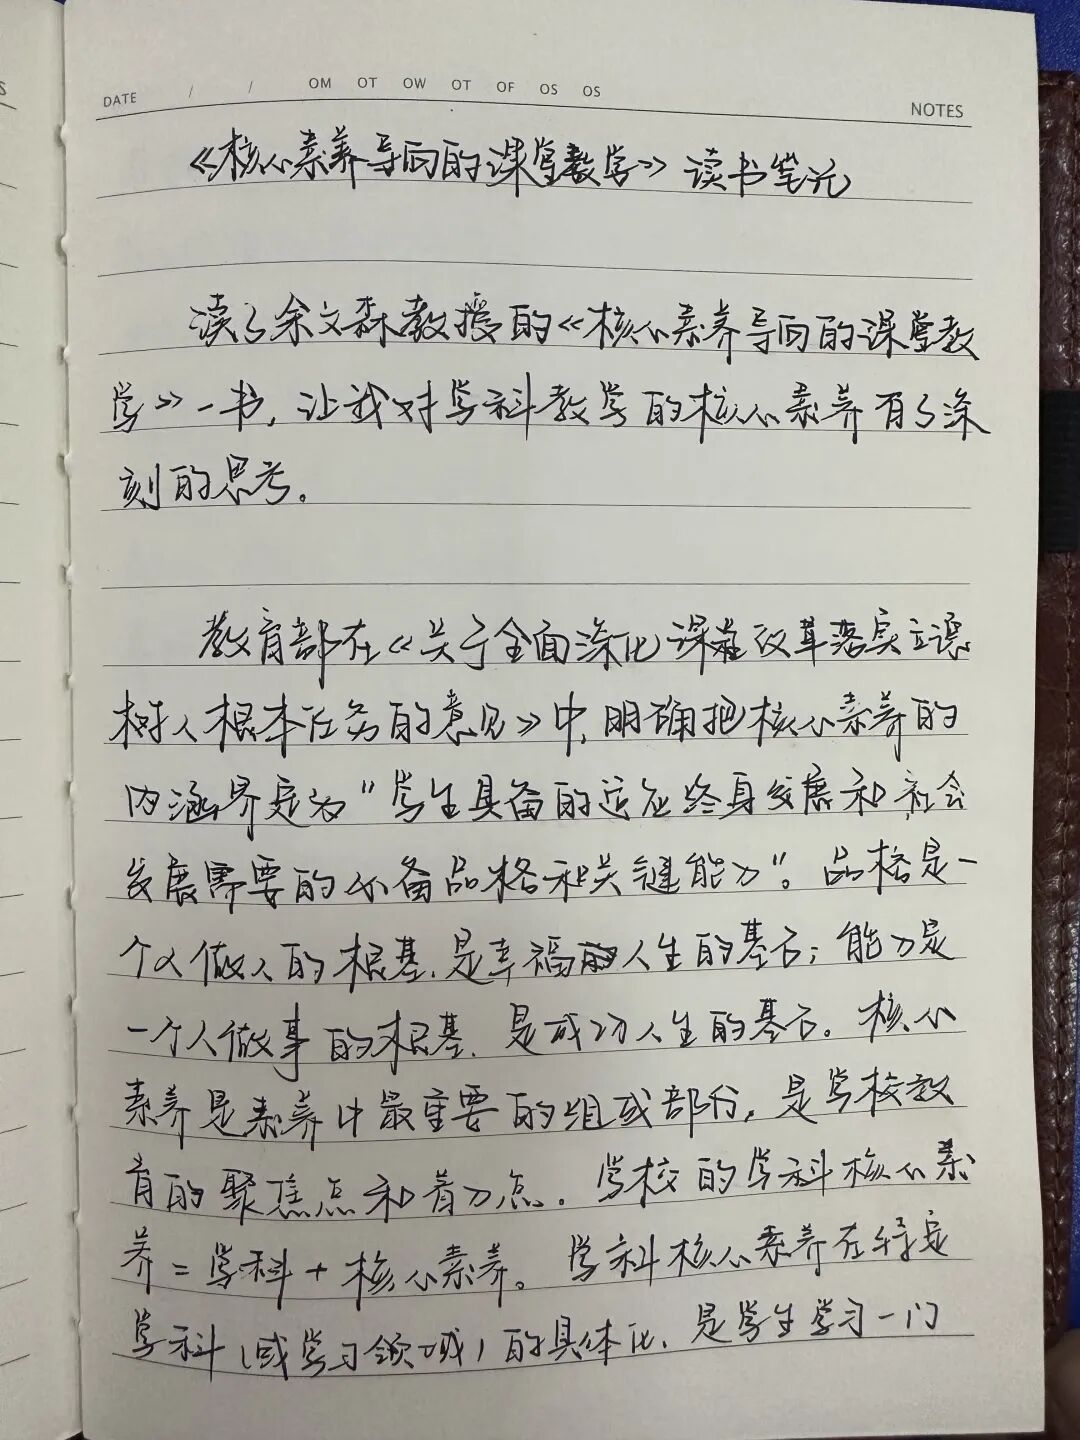 DATE / / OM OT OW OT OF OS OS
NOTES
《核心素养导向的课堂教学》读书笔记
读了余文森教授的《核心素养导向的课堂教
学》一书，让我对学科教学的核心素养有了深
刻的思考。
教育部在《关于全面深化课程改革落实立德
树人根本任务的意见》中，明确把核心素养的
内涵界定为"学生具备的适应终身发展和社会
发展需要的必备品格和关键能力"。品格是一
个人做人的根基，是幸福人生的基石；能力是
一个人做事的根基，是成功人生的基石。核心
素养是素养中最重要的组成部分，是学校教
育的聚焦点和着力点。学校的学科核心素
养=学科+核心素养。学科核心素养在特定
学科（或学习领域）的具体化，是学生学习一门